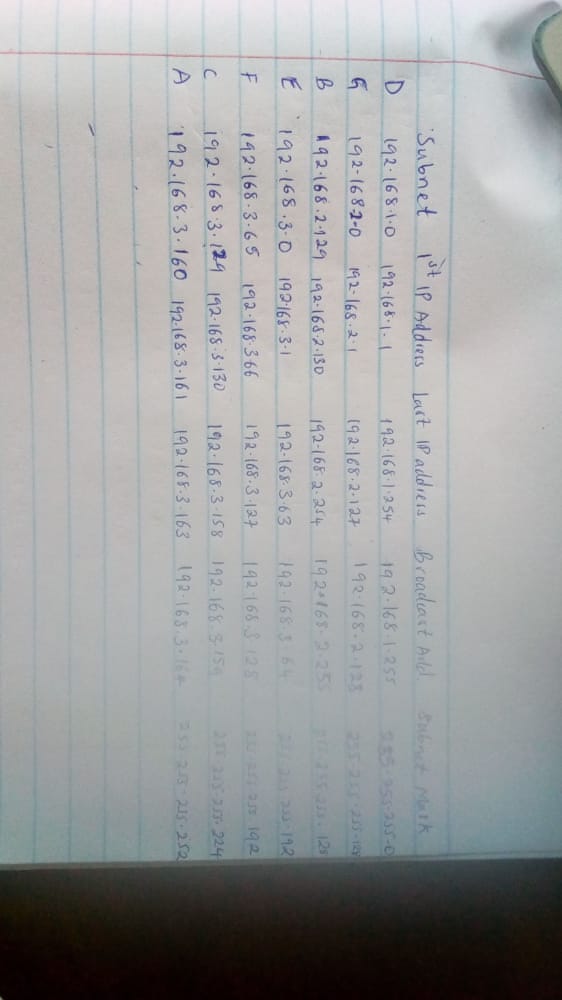 Subnet 1st IP Address Last IP address Broadcast Add Subnet Mask
D 192.168.1.0 192.168.1.1 192.168.1.254 192.168.1.255 255.255.255.0
G 192.168.2.0 192.168.2.1 192.168.2.127 192.168.2.128 255.255.255.128
B 192.168.2.129 192.168.2.130 192.168.2.254 192.168.2.255 255.255.255.128
E 192.168.3.0 192.168.3.1 192.168.3.63 192.168.3.64 255.255.255.192
F 192.168.3.65 192.168.3.66 192.168.3.127 192.168.3.128 255.255.255.192
C 192.168.3.129 192.168.3.130 192.168.3.158 192.168.3.159 255.255.255.224
A 192.168.3.160 192.168.3.161 192.168.3.163 192.168.3.164 255.255.255.252